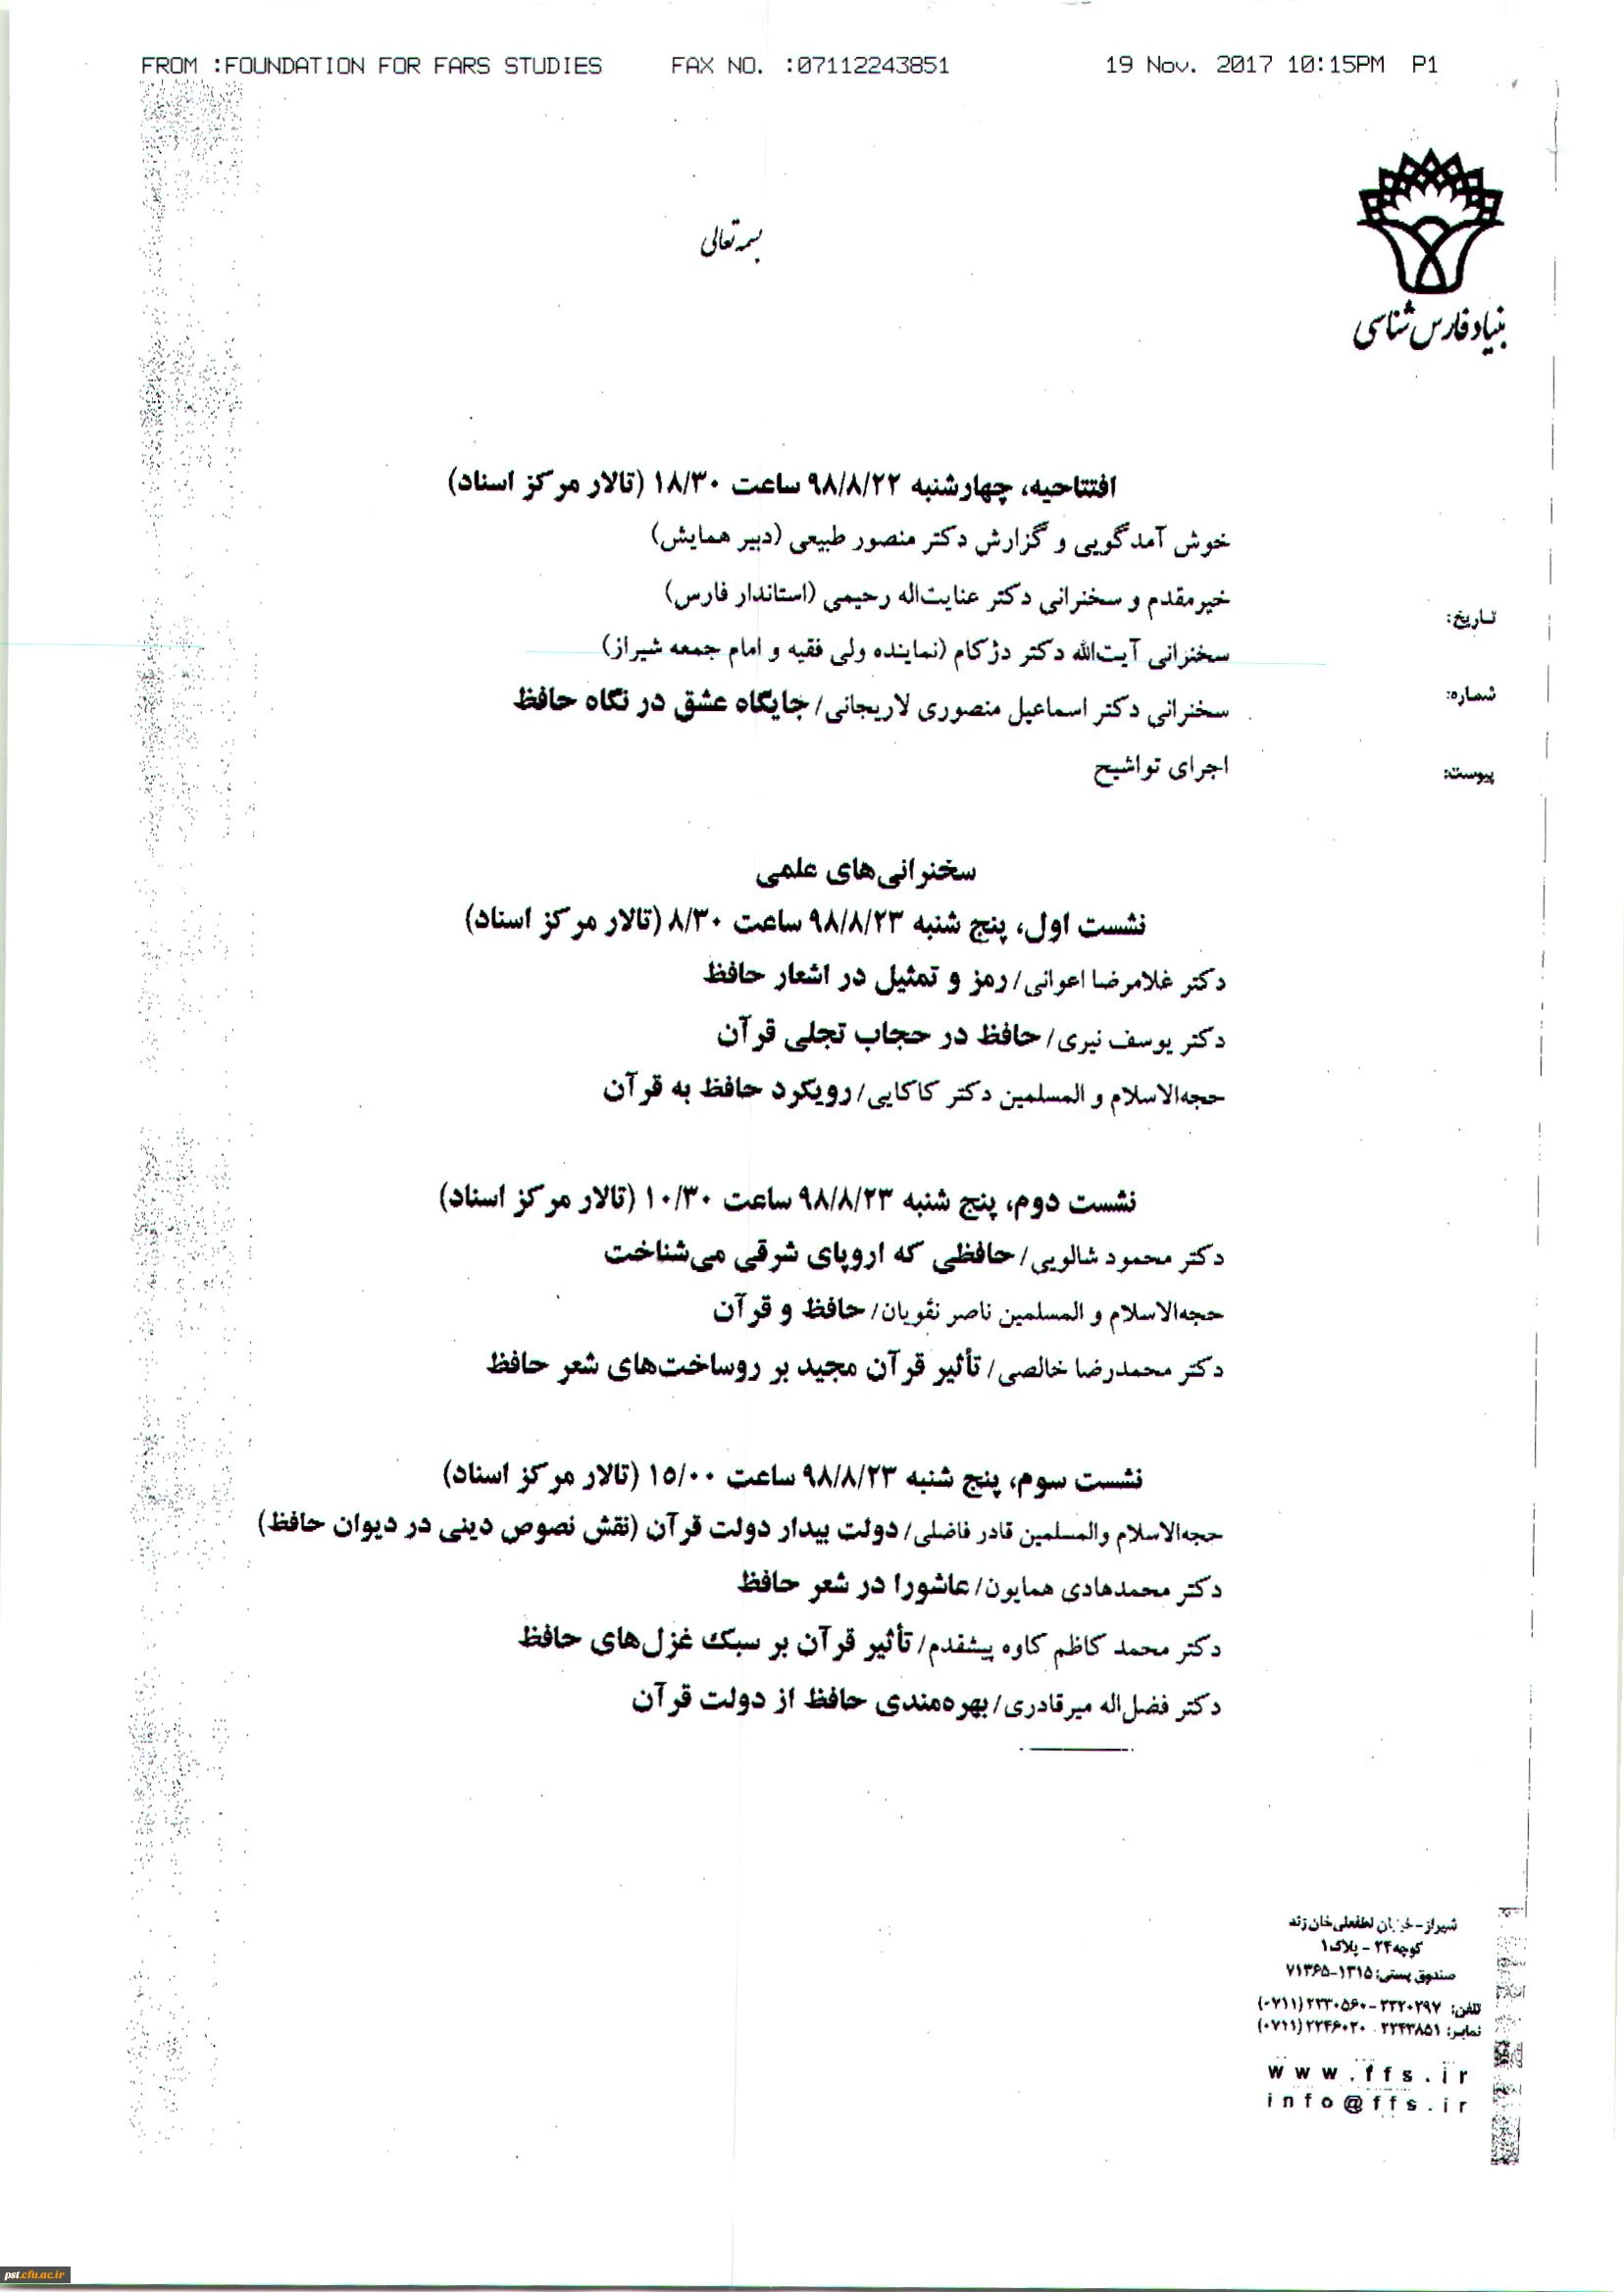 FROM :FOUNDATION FOR FARS STUDIES FAX NO. :07112243851 19 Nov. 2017 10:15PM P1
بسمه تعالی
بنیاد فارس شناسی
افتتاحیه، چهارشنبه ۹۸/۸/۲۲ ساعت ۱۸/۳۰ (تالار مرکز اسناد)
خوش آمدگویی و گزارش دکتر منصور طبیعی (دبیر همایش)
خیرمقدم و سخنرانی دکتر عنایت‌اله رحیمی (استاندار فارس)
تاریخ:
سخنرانی آیت‌الله دکتر دژکام (نماینده ولی فقیه و امام جمعه شیراز)
شماره:
سخنرانی دکتر اسماعیل منصوری لاریجانی/ جایگاه عشق در نگاه حافظ
اجرای تواشیح
پیوست:
سخنرانی‌های علمی
نشست اول، پنج شنبه ۹۸/۸/۲۳ ساعت ۸/۳۰ (تالار مرکز اسناد)
دکتر غلامرضا اعوانی/ رمز و تمثیل در اشعار حافظ
دکتر یوسف نیری/ حافظ در حجاب تجلی قرآن
حجه‌الاسلام و المسلمین دکتر کاکایی/ رویکرد حافظ به قرآن
نشست دوم، پنج شنبه ۹۸/۸/۲۳ ساعت ۱۰/۳۰ (تالار مرکز اسناد)
دکتر محمود شالویی/ حافظی که اروپای شرقی می‌شناخت
حجه‌الاسلام و المسلمین ناصر نقویان/ حافظ و قرآن
دکتر محمدرضا خالصی/ تأثیر قرآن مجید بر روساخت‌های شعر حافظ
نشست سوم، پنج شنبه ۹۸/۸/۲۳ ساعت ۱۵/۰۰ (تالار مرکز اسناد)
حجه‌الاسلام والمسلمین قادر فاضلی/ دولت بیدار دولت قرآن (نقش نصوص دینی در دیوان حافظ)
دکتر محمدهادی همایون/ عاشورا در شعر حافظ
دکتر محمد کاظم کاوه پیشقدم/ تأثیر قرآن بر سبک غزل‌های حافظ
دکتر فضل‌اله میرقادری/ بهره‌مندی حافظ از دولت قرآن
شیراز-خیابان لطفعلی‌خان زند
کوچه ۲۴ - پلاک ۱
صندوق پستی: ۱۳۱۵-۷۱۳۶۵
تلفن: ۲۲۲۰۲۹۷-۲۲۳۰۵۶۰ (۰۷۱۱)
نمابر: ۲۲۴۳۸۵۱ ۲۲۴۶۰۲۰ (۰۷۱۱)
www.ffs.ir
info@ffs.ir
pst.cfu.ac.ir